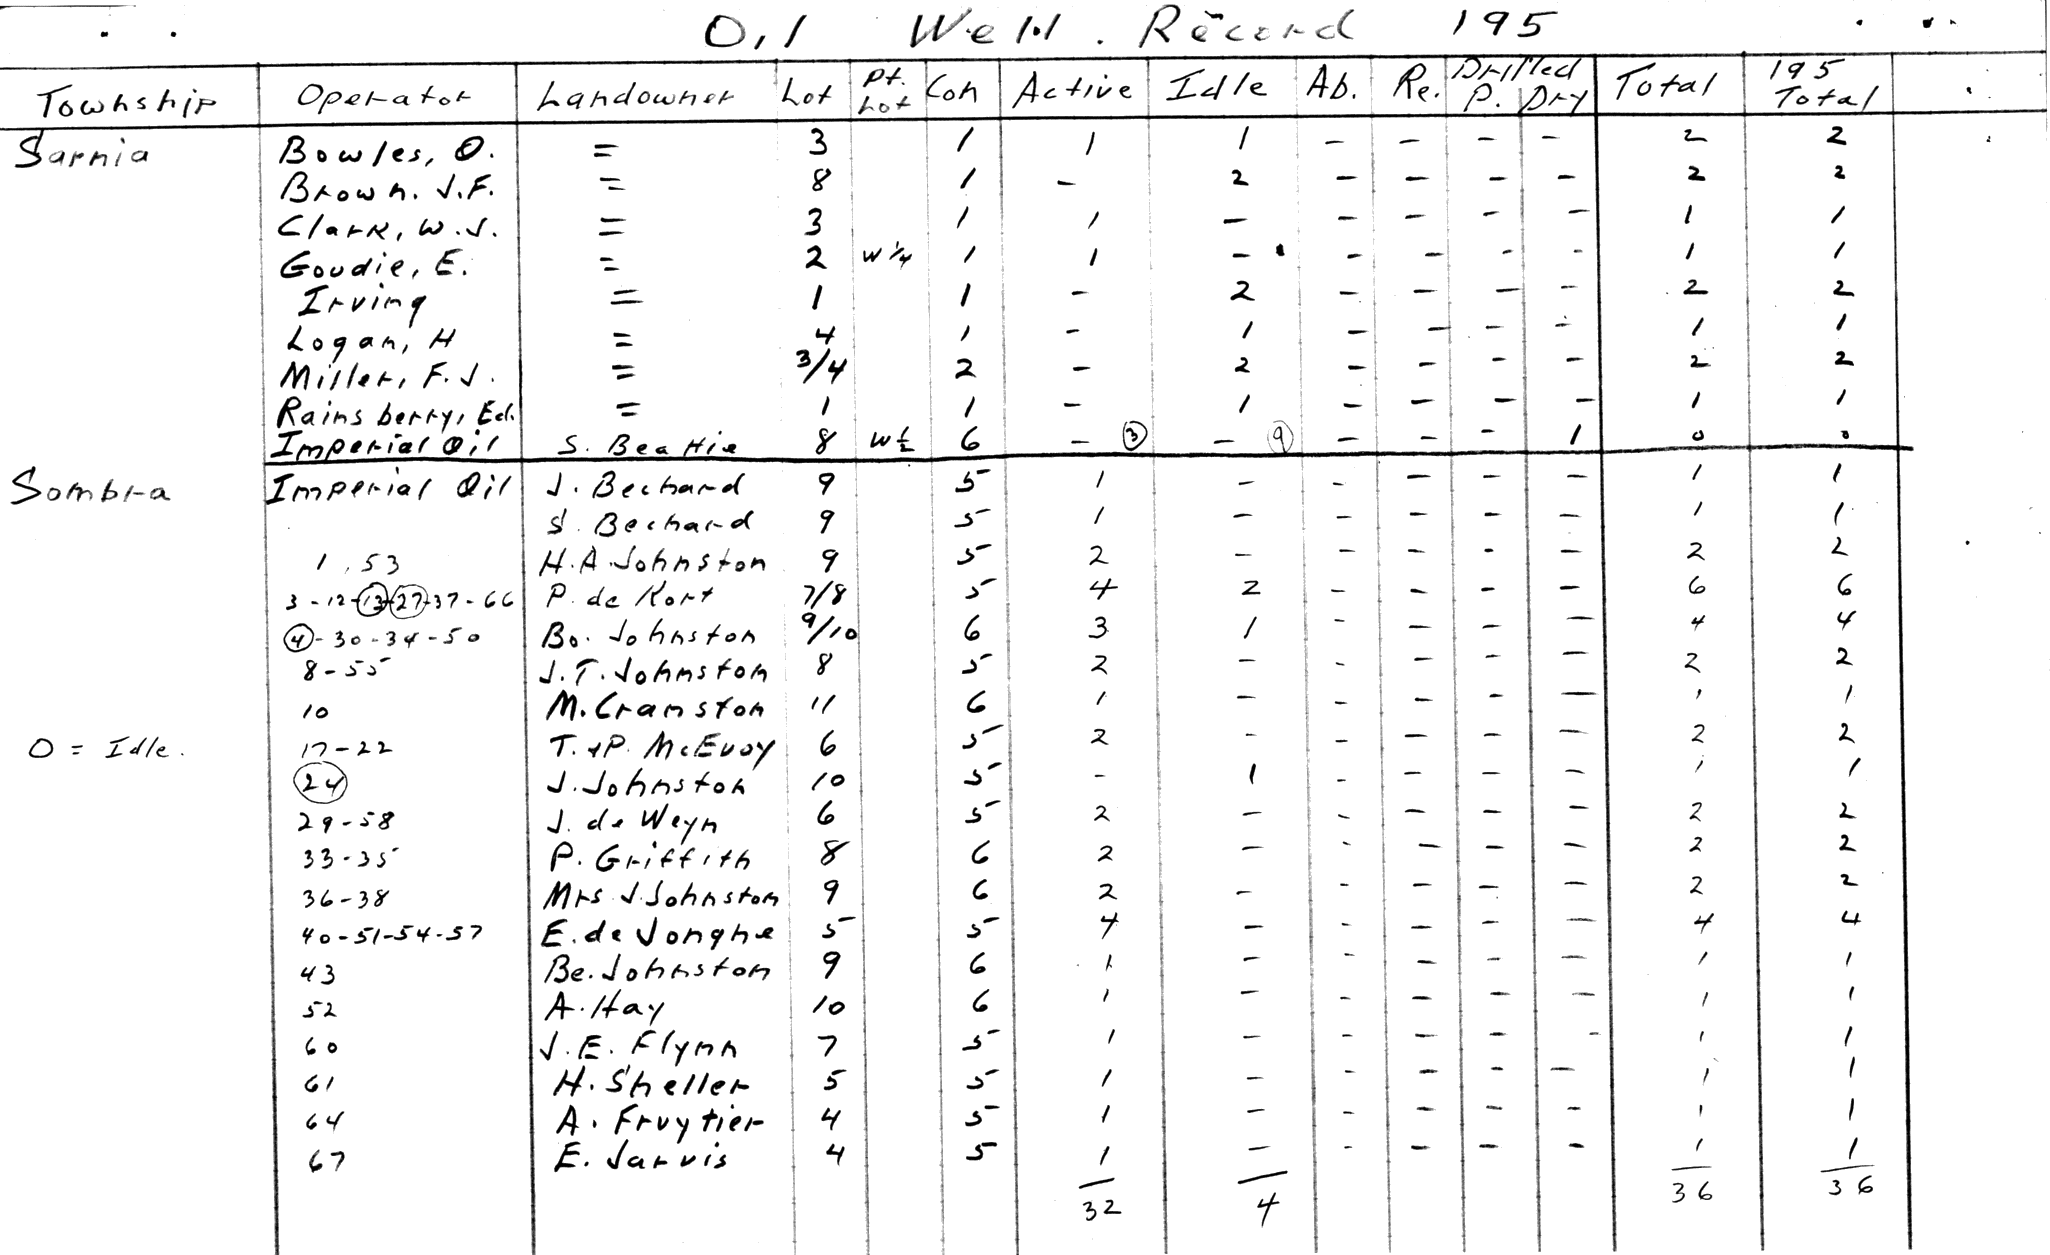 Oil Well. Record 195
Township Operator Landowner Lot Pt. Lot Con Active Idle Ab. Re. Drilled P. Dry Total 195 Total
Sarnia Bowles, O. = 3 1 1 1 - - - - 2 2
Brown. J.F. = 8 1 - 2 - - - - 2 2
Clark, W.J. = 3 1 1 - - - - - 1 1
Goudie, E. = 2 W 1/4 1 1 - - - - - 1 1
Irving = 1 1 - 2 - - - - 2 2
Logan, H = 4 1 - 1 - - - - 1 1
Miller, F.J. = 3/4 2 - 2 - - - - 2 2
Rains berry, Ed. = 1 1 - 1 - - - - 1 1
Imperial Oil S. Beattie 8 W 1/2 6 - 3 - 9 - - - 1 0 0
Sombra Imperial Oil J. Bechard 9 5 1 - - - - - 1 1
S. Bechard 9 5 1 - - - - - 1 1
1, 53 H.A. Johnston 9 5 2 - - - - - 2 2
3-12-13-27-37-66 P. de Kort 7/8 5 4 2 - - - - 6 6
4-30-34-50 Bo. Johnston 9/10 6 3 1 - - - - 4 4
8-55 J.T. Johnston 8 5 2 - - - - - 2 2
10 M. Cranston 11 6 1 - - - - - 1 1
O = Idle. 17-22 T. +P. McEvoy 6 5 2 - - - - - 2 2
24 J. Johnston 10 5 - 1 - - - - 1 1
29-58 J. de Weyn 6 5 2 - - - - - 2 2
33-35 P. Griffith 8 6 2 - - - - - 2 2
36-38 Mrs J. Johnston 9 6 2 - - - - - 2 2
40-51-54-57 E. de Jonghe 5 5 4 - - - - - 4 4
43 Be. Johnston 9 6 1 - - - - - 1 1
52 A. Hay 10 6 1 - - - - - 1 1
60 J.E. Flynn 7 5 1 - - - - - 1 1
61 H. Sheller 5 5 1 - - - - - 1 1
64 A. Fruytier 4 5 1 - - - - - 1 1
67 E. Jarvis 4 5 1 - - - - - 1 1
32 4 36 36